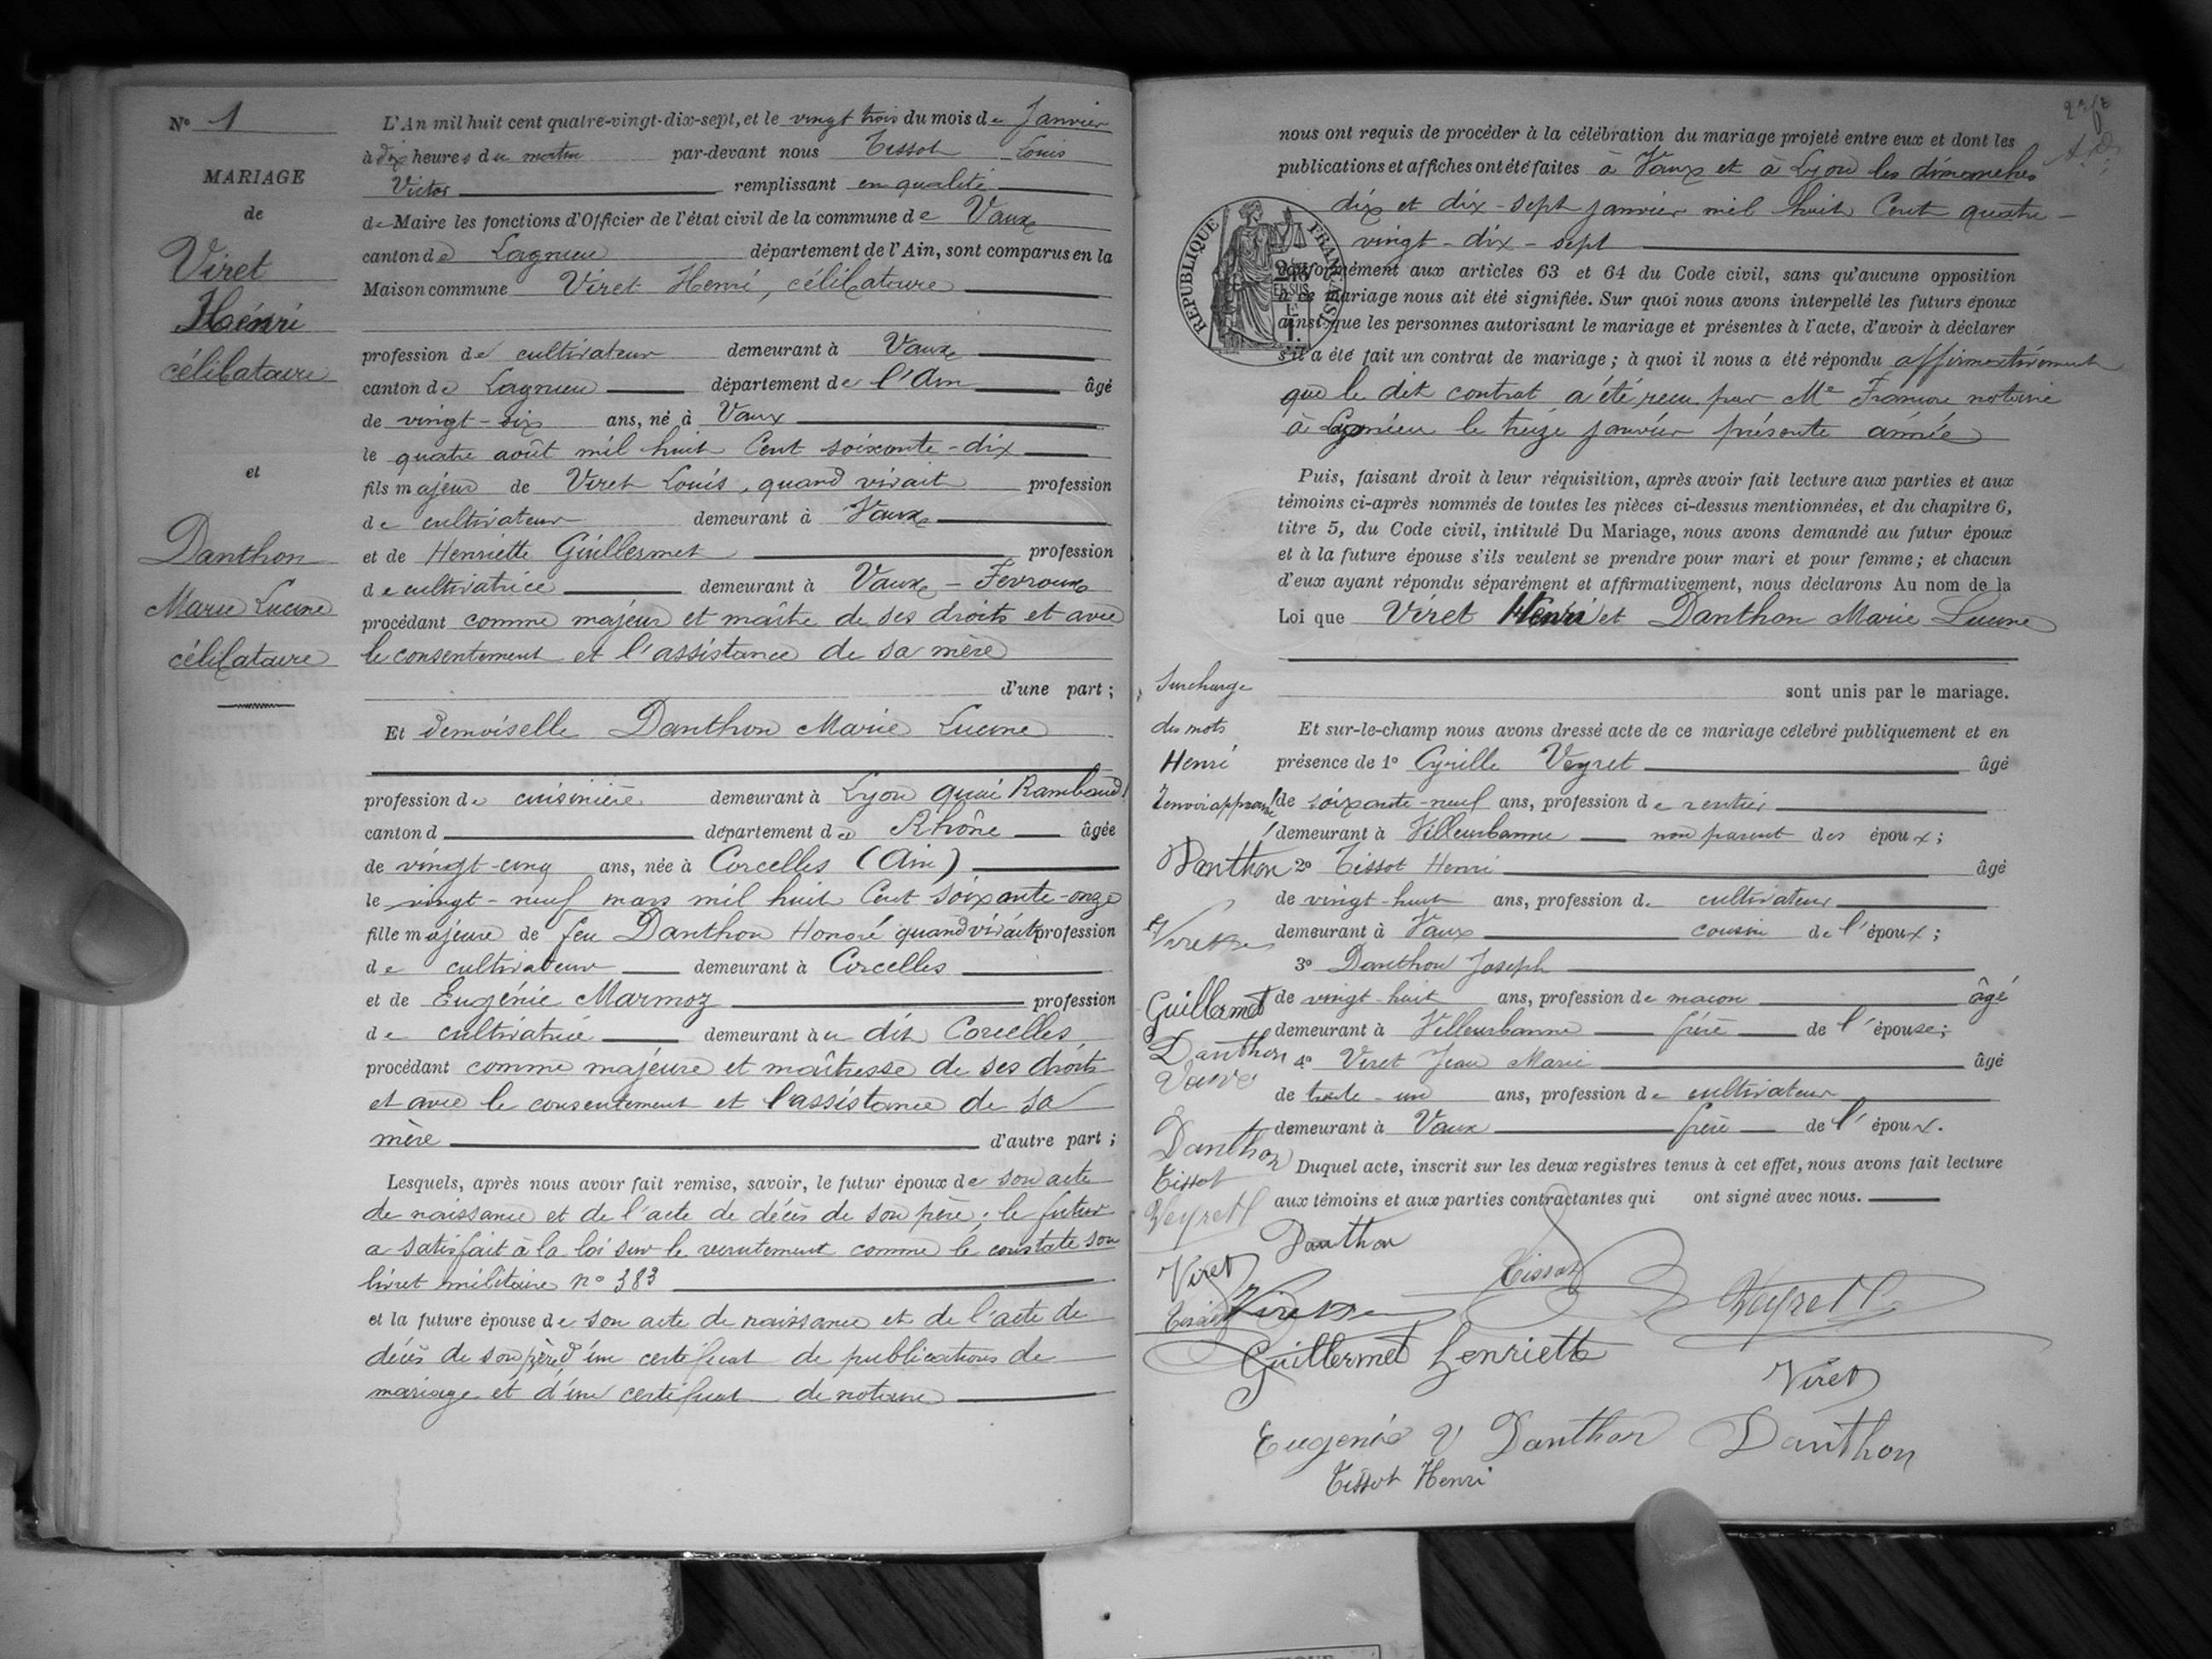 Nº 1
MARIAGE
de
Viret
Henri
célibataire
et
Danthon
Marie Lucine
célibataire
L'An mil huit cent quatre-vingt-dix-sept, et le vingt trois du mois de Janvier
à dix heures du matin par-devant nous Tissot Louis
Victor remplissant en qualité
de Maire les fonctions d'Officier de l'état civil de la commune de Vaux
canton de Lagnieu département de l'Ain, sont comparus en la
Maison commune Viret Henri, célibataire
profession de cultivateur demeurant à Vaux
canton de Lagnieu département de l'Ain âgé
de vingt-six ans, né à Vaux
le quatre août mil huit Cent soixante-dix
fils majeur de Viret Louis, quand vivait profession
de cultivateur demeurant à Vaux
et de Henriette Guillermet profession
de cultivatrice demeurant à Vaux - Fevroux
procédant comme majeur et maître de ses droits et avec
le consentement et l'assistance de sa mère
d'une part ;
Et demoiselle Danthon Marie Lucine
profession de cuisinière demeurant à Lyon quai Rambaud
canton d département du Rhône âgée
de vingt-cinq ans, née à Corcelles (Ain)
le vingt-neuf mars mil huit Cent soixante-onze
fille majeure de feu Danthon Honoré quand vivait profession
de cultivateur demeurant à Corcelles
et de Eugénie Marmoz profession
de cultivatrice demeurant au dit Corcelles
procédant comme majeure et maîtresse de ses droits
et avec le consentement et l'assistance de sa
mère d'autre part ;
Lesquels, après nous avoir fait remise, savoir, le futur époux de son acte
de naissance et de l'acte de décès de son père ; le futur
a satisfait à la loi sur le recrutement comme le constate son
livret militaire nº 383
et la future épouse de son acte de naissance et de l'acte de
décès de son père d'un certificat de publications de
mariage et d'un certificat de notaire
nous ont requis de procéder à la célébration du mariage projeté entre eux et dont les
publications et affiches ont été faites à Vaux et à Lyon les dimanches
dix et dix-sept janvier mil huit Cent quatre-
vingt-dix-sept
REPUBLIQUE FRANÇAISE
conformément aux articles 63 et 64 du Code civil, sans qu'aucune opposition
à ce mariage nous ait été signifiée. Sur quoi nous avons interpellé les futurs époux
ainsi que les personnes autorisant le mariage et présentes à l'acte, d'avoir à déclarer
s'il a été fait un contrat de mariage ; à quoi il nous a été répondu affirmativement
que le dit contrat a été reçu par Me notaire
à Lagnieu le treize janvier présente année
Puis, faisant droit à leur réquisition, après avoir fait lecture aux parties et aux
témoins ci-après nommés de toutes les pièces ci-dessus mentionnées, et du chapitre 6,
titre 5, du Code civil, intitulé Du Mariage, nous avons demandé au futur époux
et à la future épouse s'ils veulent se prendre pour mari et pour femme ; et chacun
d'eux ayant répondu séparément et affirmativement, nous déclarons Au nom de la
Loi que Viret Henri et Danthon Marie Lucine
sont unis par le mariage.
Et sur-le-champ nous avons dressé acte de ce mariage célébré publiquement et en
présence de 1º Cyrille Veyret âgé
de soixante-neuf ans, profession de rentier
demeurant à Villeurbanne non parent des époux ;
2º Tissot Henri âgé
de vingt-huit ans, profession de cultivateur
demeurant à Vaux cousin de l'époux ;
3º Danthon Joseph
de vingt-huit ans, profession de maçon âgé
demeurant à Villeurbanne frère de l'épouse ;
4º Viret Jean Marie âgé
de trente-un ans, profession de cultivateur
demeurant à Vaux frère de l'époux.
Duquel acte, inscrit sur les deux registres tenus à cet effet, nous avons fait lecture
aux témoins et aux parties contractantes qui ont signé avec nous.
Surcharge
du mots
Henri
Danthon
Guillermet
Danthon
Danthon
Tissot
Veyret
Viret
Danthon
Tissot
Veyret
Guillermet henriette
Viret
Eugenie V Danthon Danthon
Tissot Henri